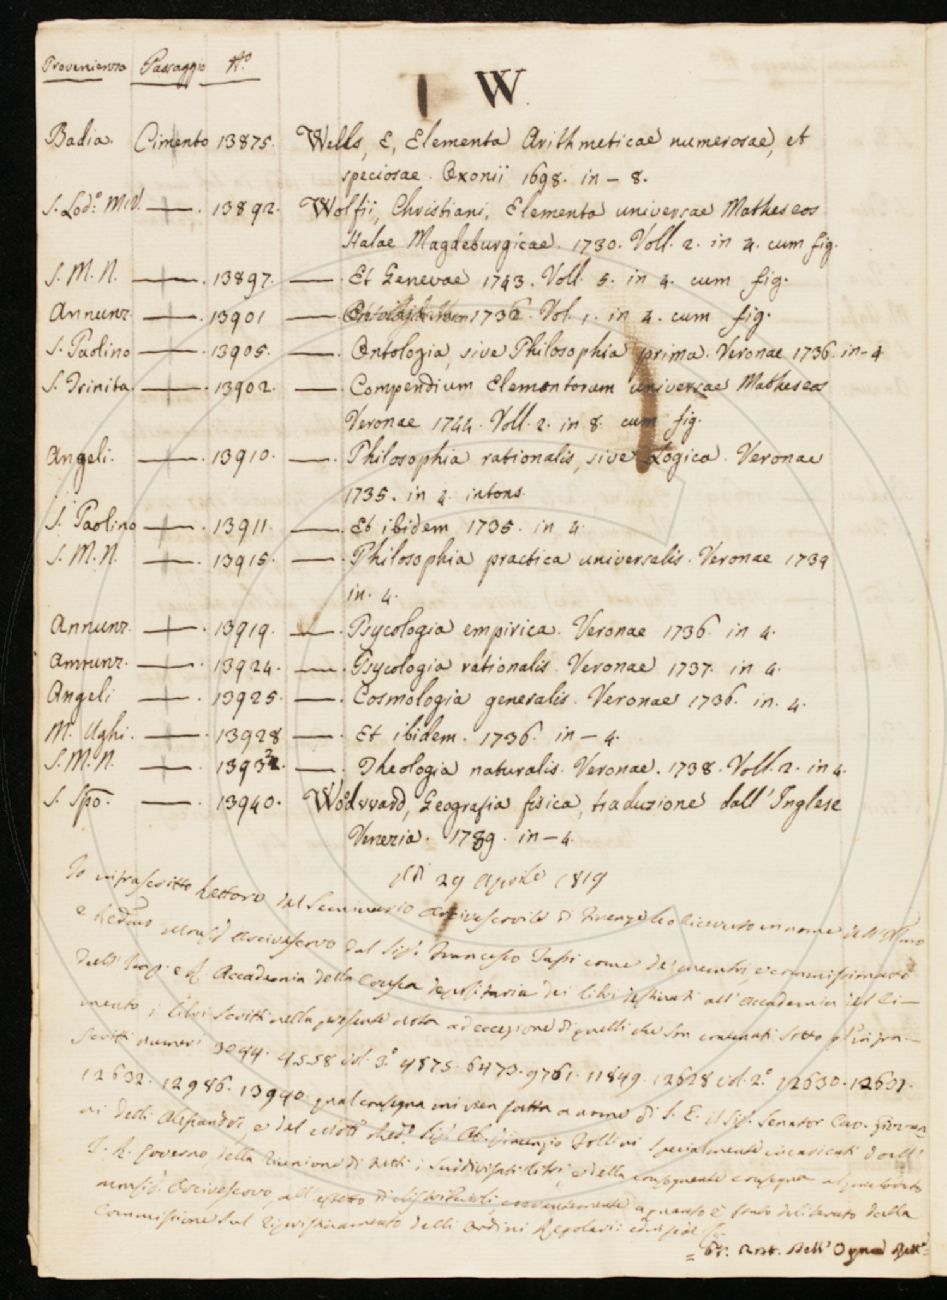 Provenienza Passaggio N.º
W.
Badia. Cimento 13875. Wells, E, Elementa Arithmeticae numerosae, et
speciosae. Oxonii 1698. in – 8.
S. Lod.º M.V. —— . 13892. Wolfii, Christiani, Elementa universae Matheseos
Halae Magdeburgicae. 1730. Voll. 2. in 4. cum fig.
S. M. N. —— . 13897. —— . Et Genevae 1743. Voll. 5. in 4. cum fig.
Annunz. —— . 13901 —— . 1736. Vol. 1. in 4. cum fig.
S. Paolino —— . 13905. —— . Ontologia, sive Philosophia prima. Veronae 1736. in–4
S. Trinita. —— . 13902. —— . Compendium Elementorum universae Matheseos
Veronae 1744. Voll. 2. in 8. cum fig.
Angeli. —— . 13910. —— . Philosophia rationalis, sive Logica. Veronae
1735. in 4. intons.
S. Paolino —— . 13911. —— . Et ibidem 1735. in 4.
S. M. N. —— . 13915. —— . Philosophia practica universalis. Veronae 1739
in. 4.
Annunz. —— . 13919. —— . Psycologia empirica. Veronae 1736. in 4.
Annunz. —— . 13924. —— . Psycologia rationalis. Veronae 1737. in 4.
Angeli —— . 13925. —— . Cosmologia generalis. Veronae 1736. in. 4.
M. Ughi. —— . 13928 —— . Et ibidem. 1736. in – 4.
S. M. N. —— . 13932. —— . Theologia naturalis. Veronae. 1738. Voll. 2. in 4.
S. Spo. —— . 13940. Wodvvard, Geografia fisica, traduzione dall' Inglese
Venezia. 1789. in – 4.
29 Aprile 1819
Io infrascritto Rettore del Seminario Arcivescovile di Firenze ho ricevuto in nome dell'
e Arcivescovo dal Sig.r Francesco come membri, e commissionato
dell' Imp. e R. Accademia della Crusca depositaria dei libri destinati all' Accademia del Ci–
mento i libri scritti nella presente nota ad eccezione di quelli che son contenuti sotto gl' infra–
scritti numeri 3094. 4558 vol. 3.º 4875. 6473. 9761. 11849. 12628 vol. 2.º 12630. 12631.
12632. 12986. 13940. qual consegna mi vien fatta a nome di S. E. il Sig. Senator Cav. Giovan
ni degli Alessandri, e dal Sig. Ab. Vincenzio Follini specialmente incaricati dall'
I. R. Governo, della riunione di tutti i suddivisati libri, e della conseguente consegna
Arcivescovo, all' effetto di distribuirli, coerentemente a quanto è stato deliberato dalla
Commissione sul ripristinamento delli Ordini Regolari: ed in fede